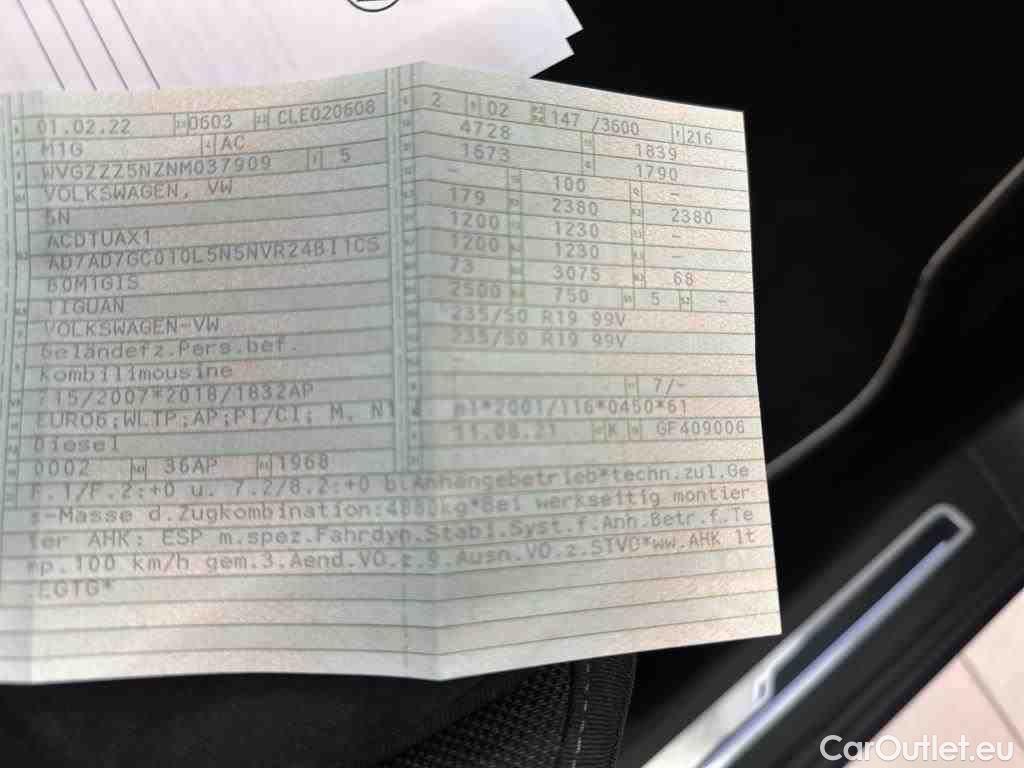 01.02.22 0603 CLE020608
M1G AC
WVGZZZ5NZNM037909 5
VOLKSWAGEN, VW
5N
ACDTUAX1
AD7AD7GC010L5N5NVR24BI1CS
B0M1GIS
TIGUAN
VOLKSWAGEN-VW
Geländefz.Pers.bef.
kombilimousine
715/2007*2018/1832AP
EURO6;WLTP;AP;PI/CI; M, N1
Diesel
0002 36AP 1968
2 02 147 /3600 216
4728 1839
1673 1790
- 100 -
179 2380 2380
1200 1230 -
1200 1230 -
73 3075 68
2500 750 5 -
235/50 R19 99V
235/50 R19 99V
-
7/-
e1*2001/116*0450*61
11.08.21 K GF409006
F.1/F.2:+0 u. 7.2/8.2:+0 Anhängebetrieb*techn.zul.Ge
s-Masse d.Zugkombination: Bei werkseitig montier
ter AHK: ESP m.spez.Fahrdyn.Stabi.Syst.f.Anh.Betr.f.Te
mp.100 km/h gem.3.Aend.VO.z.9.Ausn.VO.z.STVO*ww.AHK lt
EGTG*
CarOutlet.eu